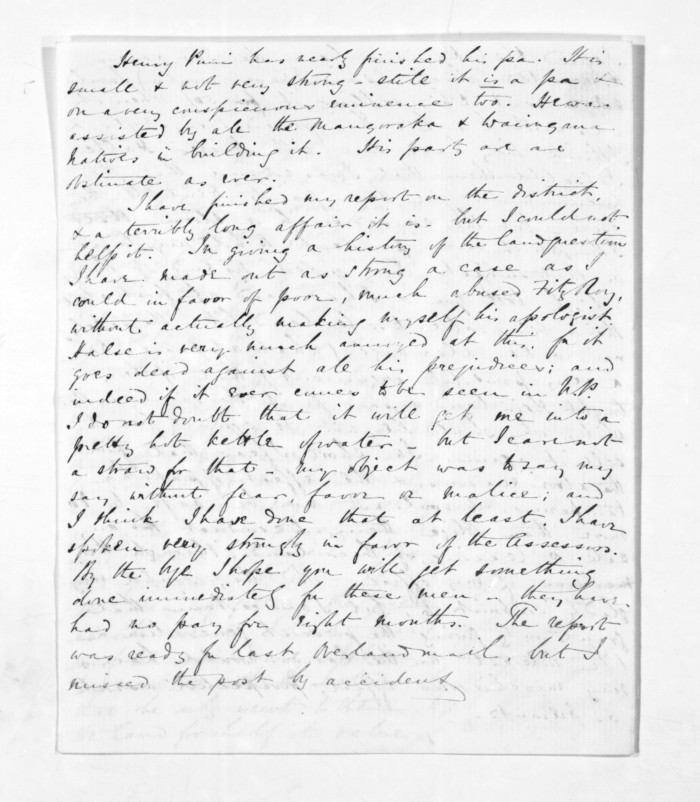 Henry Puni has nearly finished his pa. It is
small & not very strong - still it is a pa &
on a very conspicuous eminence too. He was
assisted by all the Mangoraka & Waiongana
Natives in building it. His party are as
obstinate as ever.
I have finished my report on the district,
& a terribly long affair it is - but I could not
help it. In giving a history of the land question
I have made out as strong a case as I
could in favor of poor, much abused FitzRoy,
without actually making myself his apologist
Halse is very much annoyed at this for it
goes dead against all his prejudices; and
indeed if it ever comes to be seen in N.P.
I do not doubt that it will get me into a
pretty hot kettle of water - but I care not
a straw for that - my object was to say my
say without fear, favor or malice; and
I think I have done that at least. I have
spoken very strongly in favor of the Assessors.
By the bye I hope you will get something
done immediately for these men - they have
had no pay for eight months. The report
was ready for last Overland mail, but I
missed the post by accident